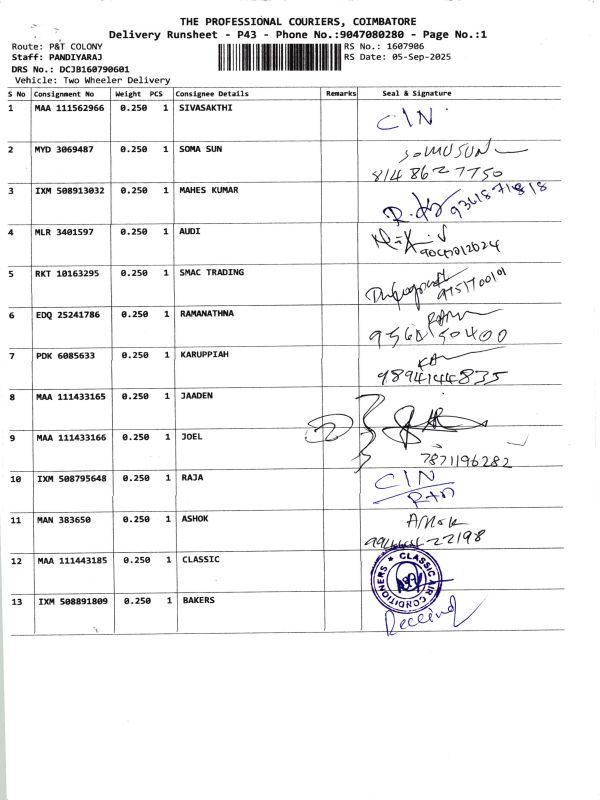 THE PROFESSIONAL COURIERS, COIMBATORE
Delivery Runsheet - P43 - Phone No.:9047080280 - Page No.:1
Route: P&T COLONY RS No.: 1607906
Staff: PANDIYARAJ RS Date: 05-Sep-2025
DRS No.: DCJB160790601
Vehicle: Two Wheeler Delivery
S No Consignment No Weight PCS Consignee Details Remarks Seal & Signature
1 MAA 111562966 0.250 1 SIVASAKTHI CIN
2 MYD 3069487 0.250 1 SOMA SUN SOMUSUN
8148627750
3 IXM 508913032 0.250 1 MAHES KUMAR
4 MLR 3401597 0.250 1 AUDI
5 RKT 10163295 0.250 1 SMAC TRADING
6 EDQ 25241786 0.250 1 RAMANATHNA
7 PDK 6085633 0.250 1 KARUPPIAH
9894144835
8 MAA 111433165 0.250 1 JAADEN
9 MAA 111433166 0.250 1 JOEL
7871196282
10 IXM 508795648 0.250 1 RAJA CIN
11 MAN 383650 0.250 1 ASHOK
12 MAA 111443185 0.250 1 CLASSIC CLASSIC AIR CONDITIONERS
13 IXM 508891809 0.250 1 BAKERS